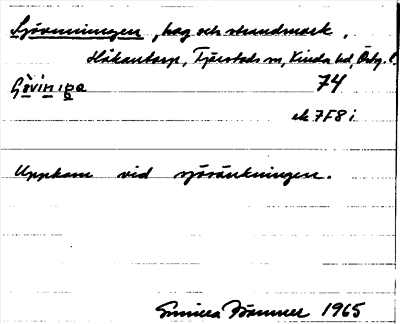 Sjövinningen, hag och strandmark,
Håkantorp, Tjärstads sn, Kinda hd, Östg. l.
74
ek 7F8 i
Uppkom vid sjösänkningen.
Gunilla 1965